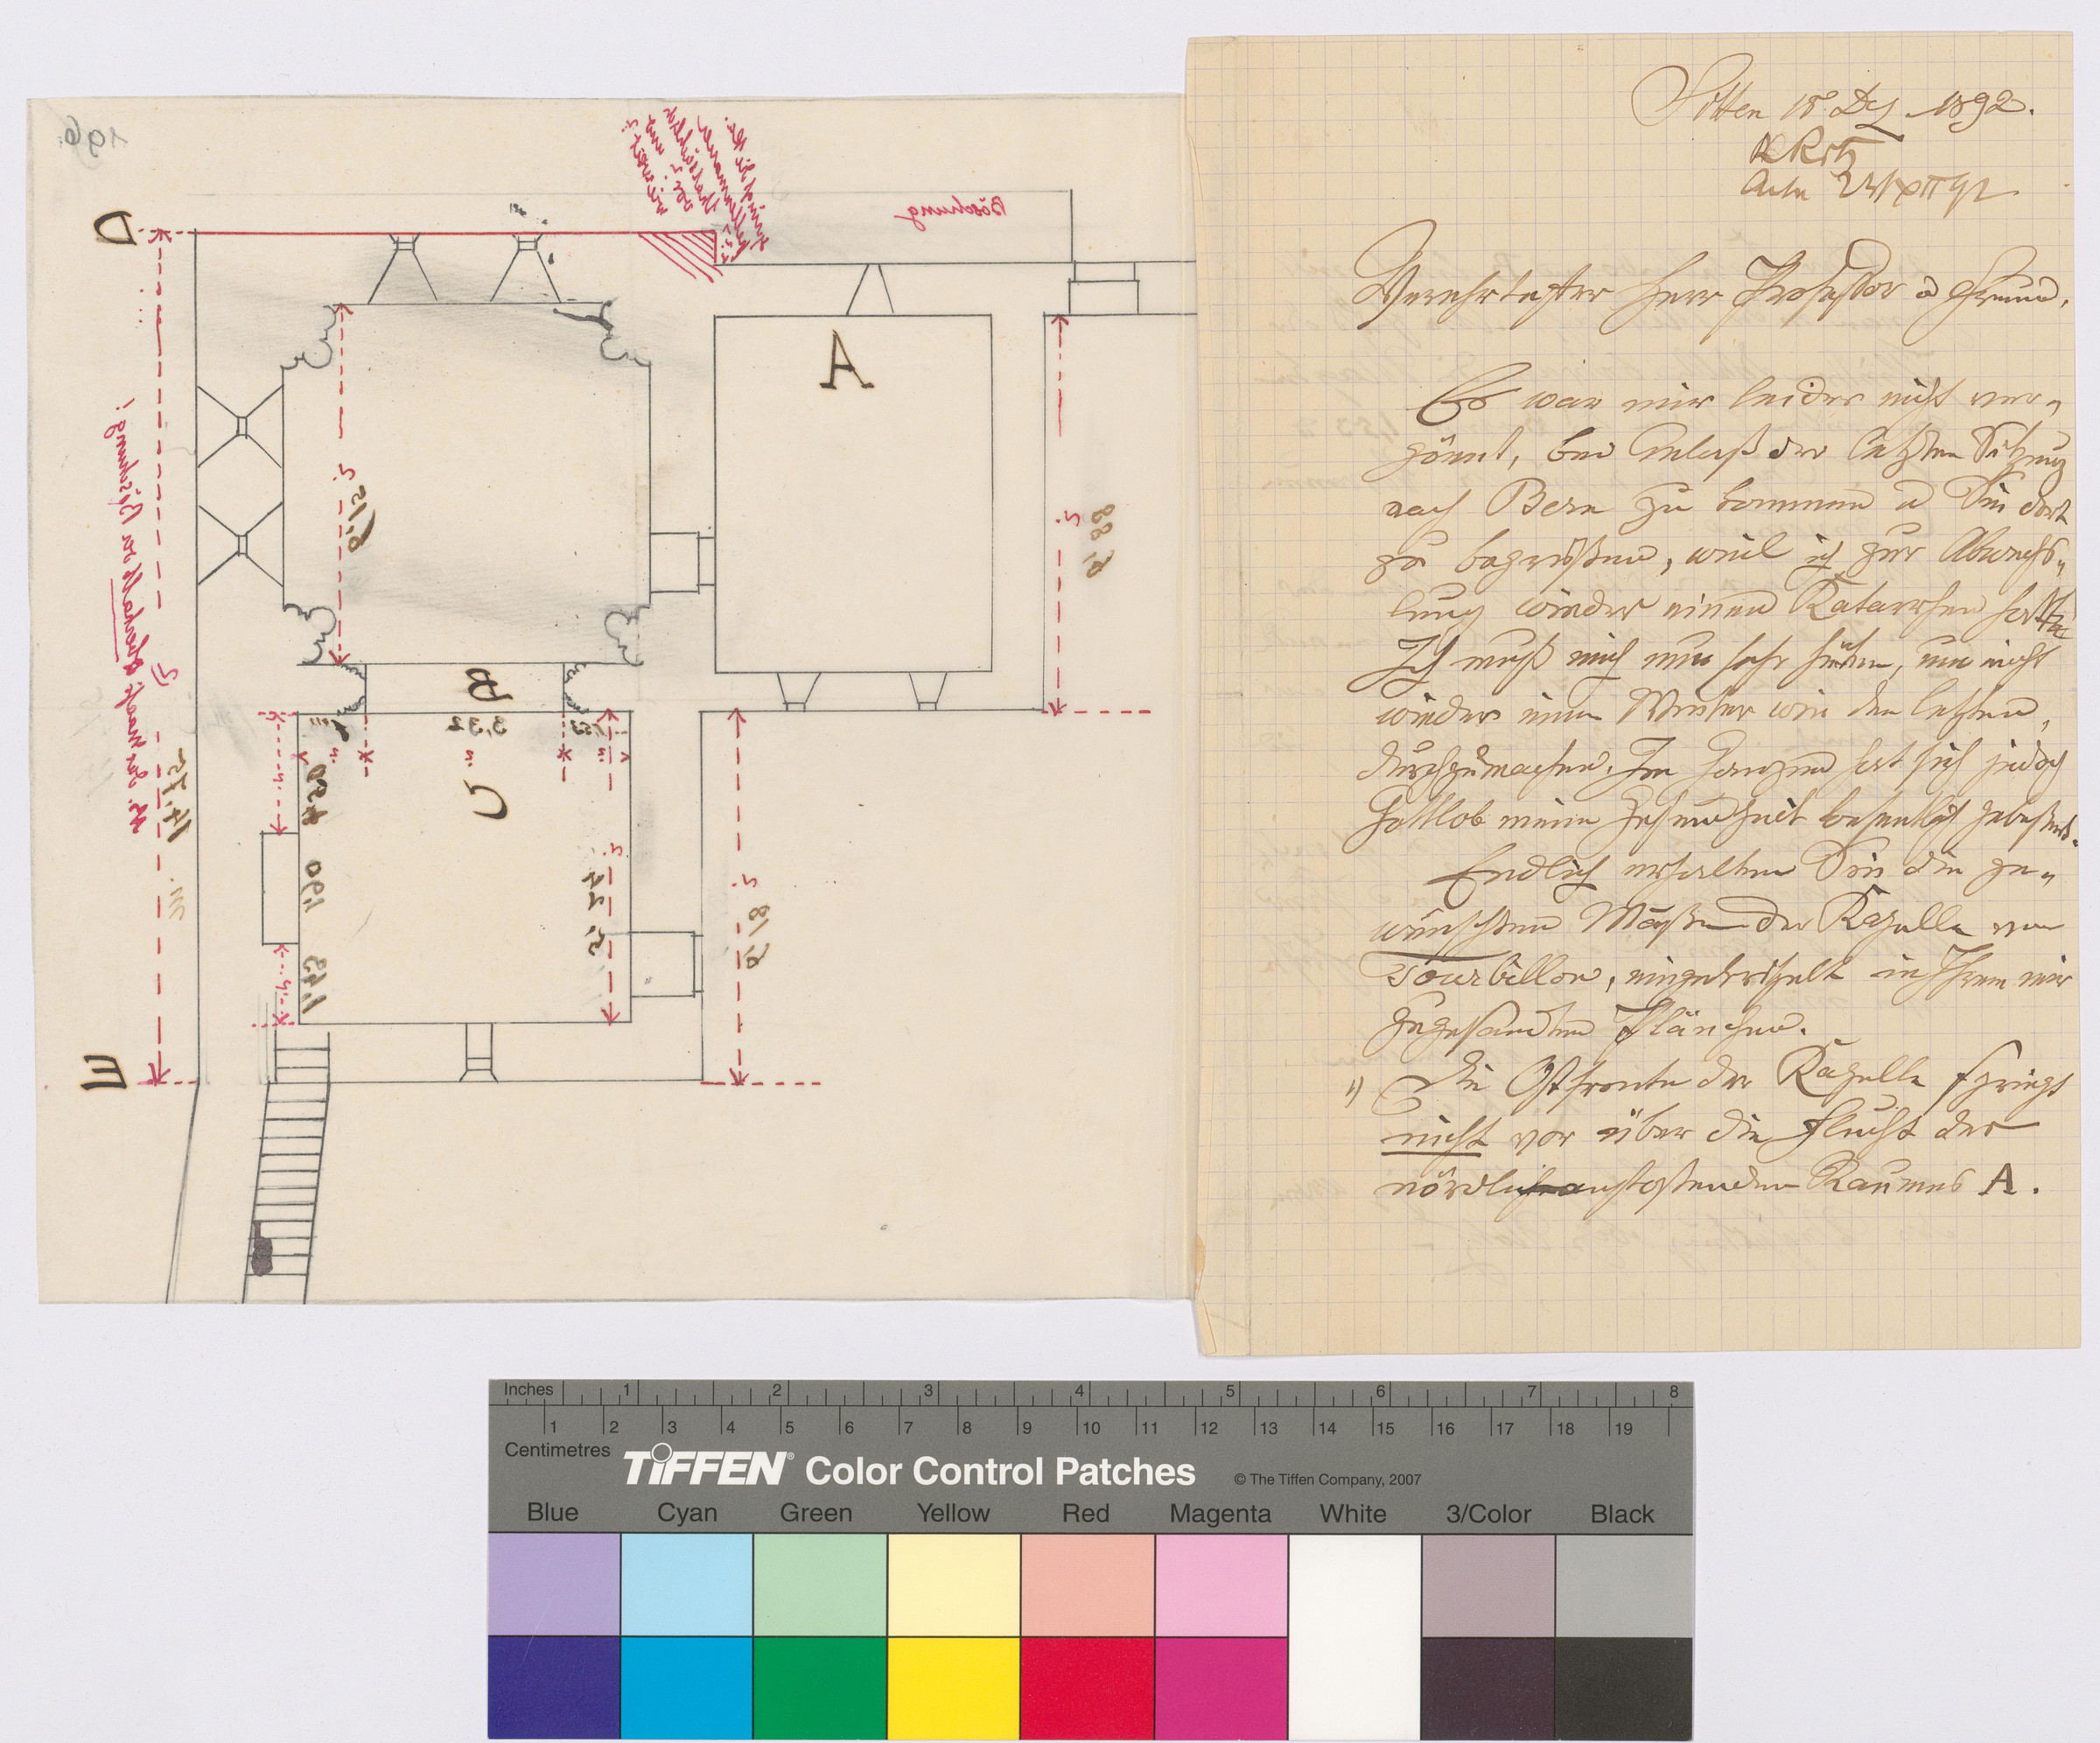 196.
Böschung
D
A
B
C
E
9,15
9,88
3,32
1,53
4,50
1,90
1,45
5,24
9,18
14,75
Sitten 18 Dez. 1892.
R Ritz
Verehrtester Herr Professor & Freund,
Es war mir leider nicht ver„
gönnt, bei Anlaß der letzten Sitzung
nach Bern zu kommen u Sie dort
zu begrüßen, weil ich zur Abwechs„
lung wieder einen Katarrhen hatte
Ich muß mich nun sehr hüten, um nicht
wieder einen Winter wie den letzten,
durchzumachen. Im Ganzen hat sich jedoch
Gottlob meine Gesundheit wesentlich gebessert.
Endlich erhalten Sie die ge„
wünschten Maßen der Kapelle von
Tourbillon, eingekritzelt in Ihrem mir
zugesandten Plänchen.
1) Die Ostfronte der Kapelle springt
nicht vor über die Flucht des
nördlich anstoßenden Raumes A.
Inches 1 2 3 4 5 6 7 8
1 2 3 4 5 6 7 8 9 10 11 12 13 14 15 16 17 18 19
Centimetres
TIFFEN® Color Control Patches © The Tiffen Company, 2007
Blue Cyan Green Yellow Red Magenta White 3/Color Black